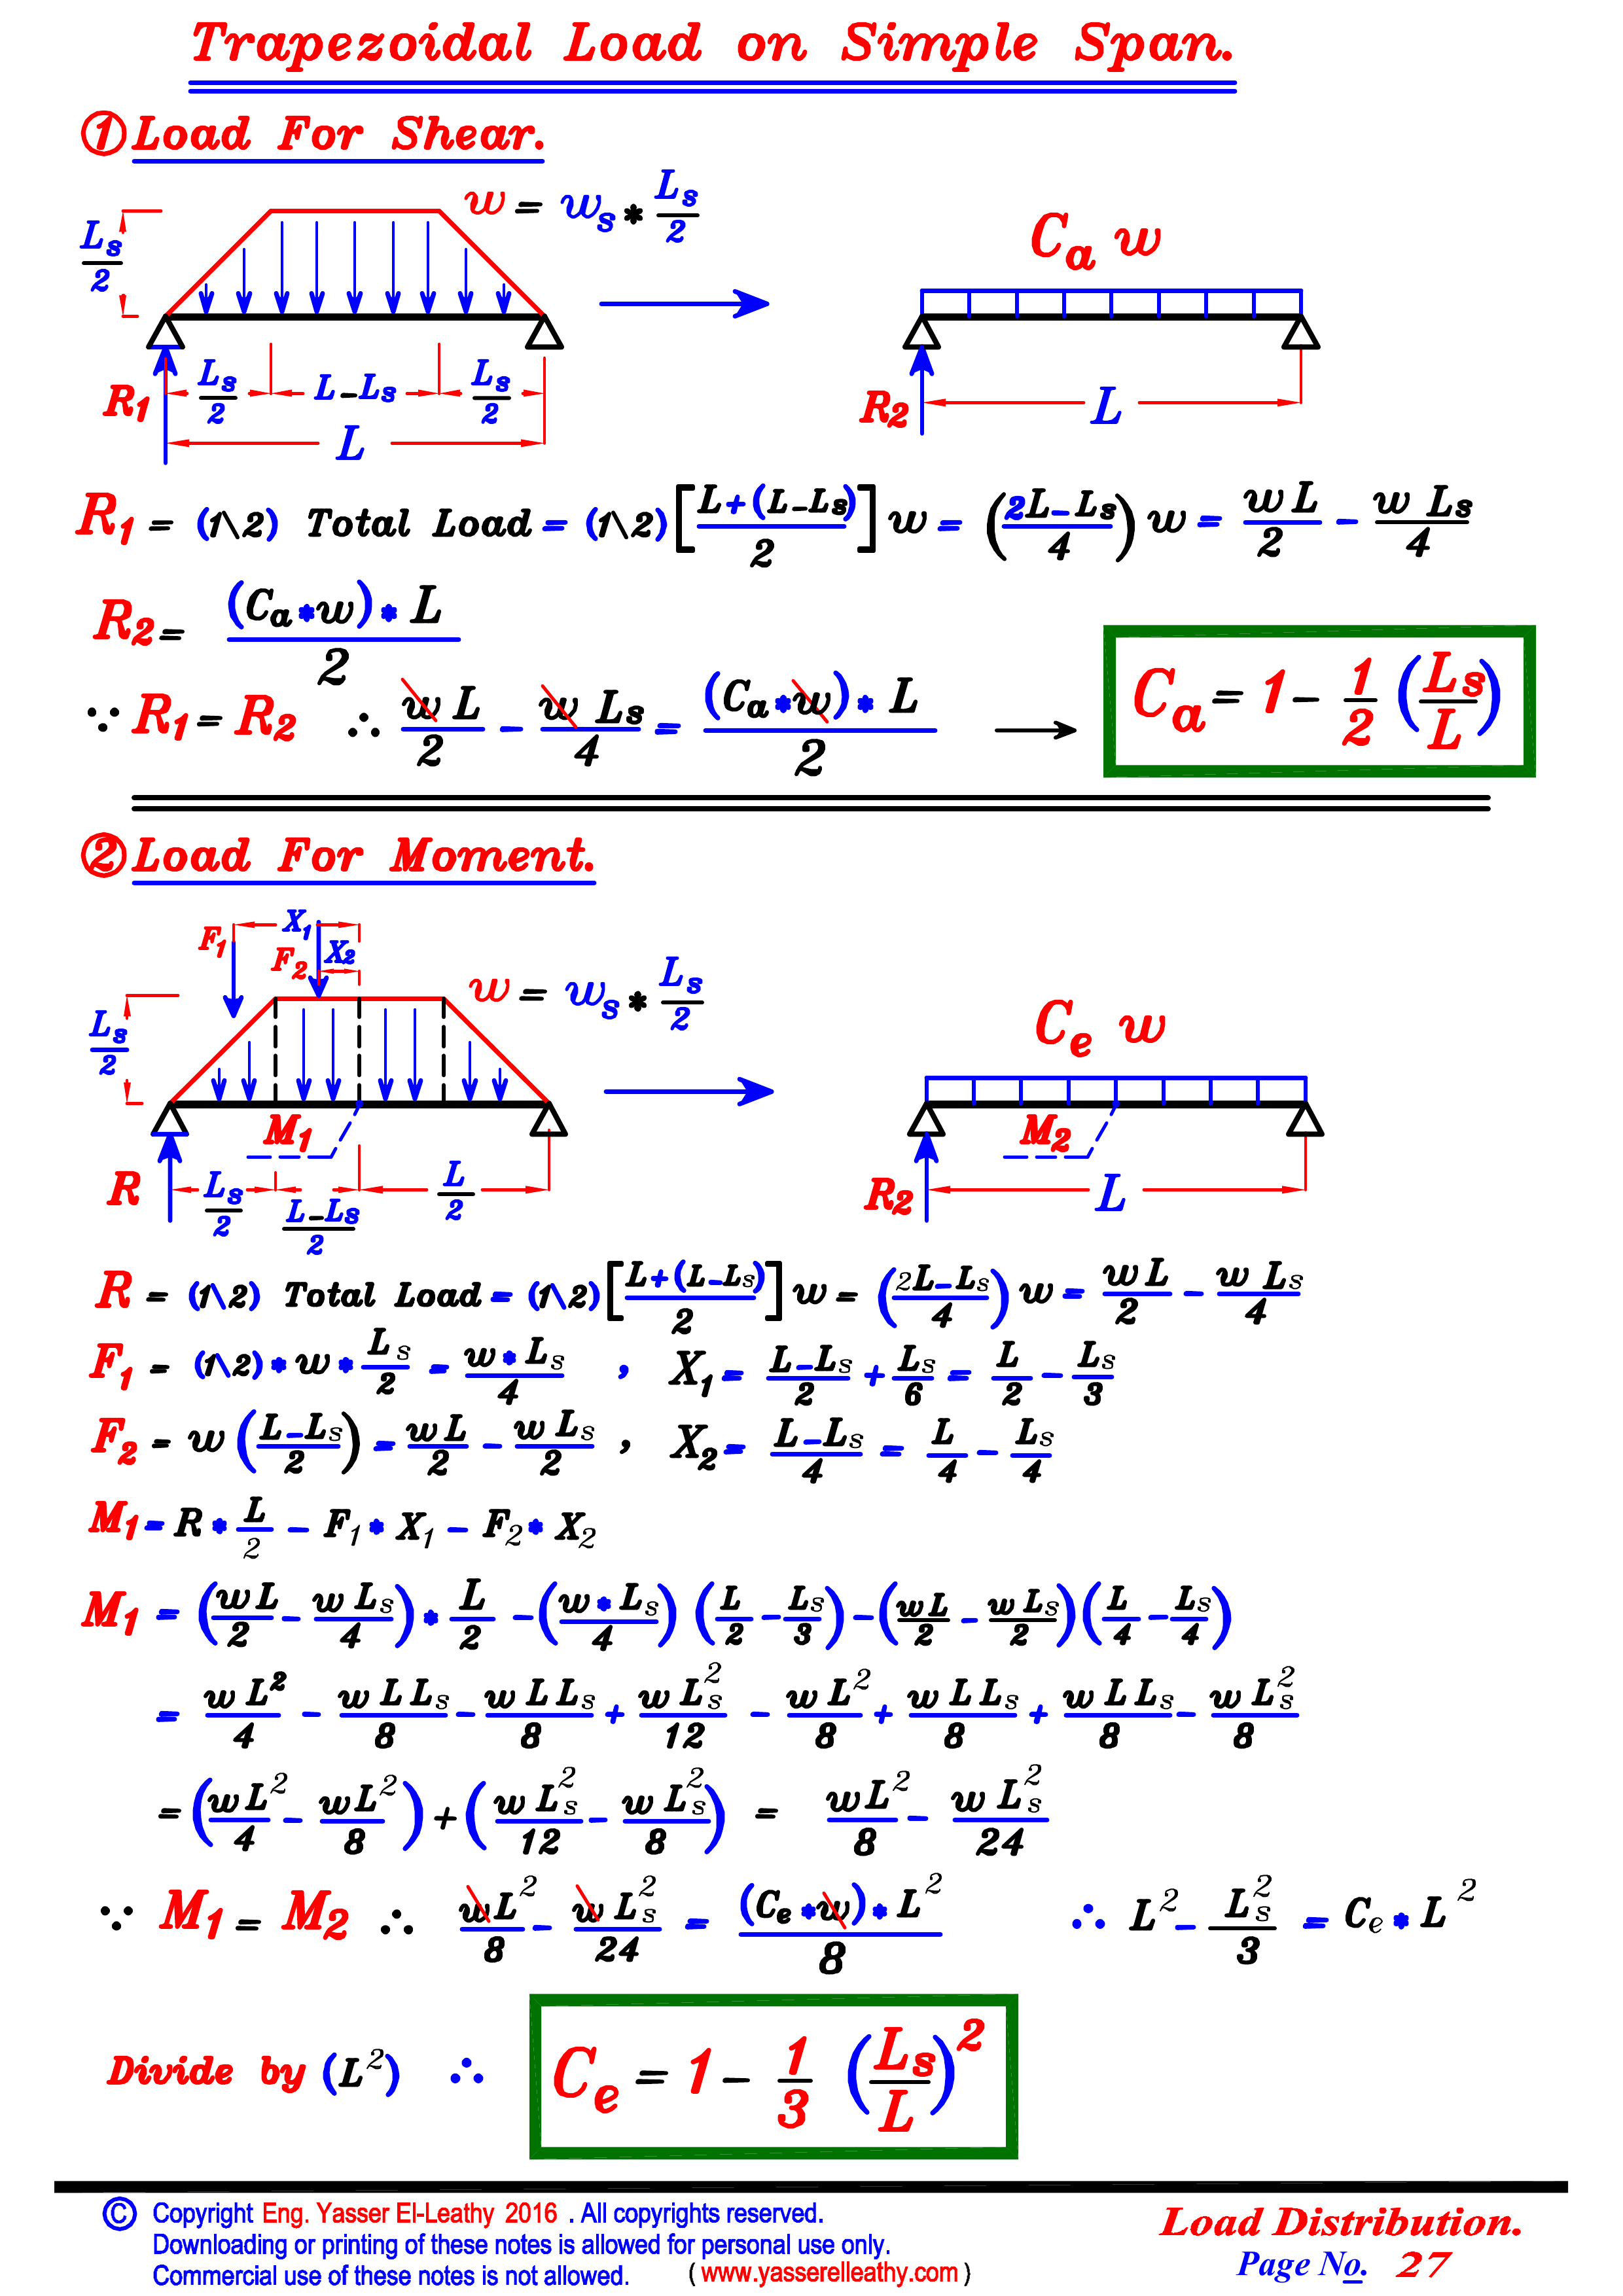 Trapezoidal Load on Simple Span.
① Load For Shear.
w = w_s * L_s/2
L_s/2
C_a w
R_1 L_s/2 L-L_s L_s/2
L
R_2 L
R_1 = (1\2) Total Load = (1\2) [ (L+(L-L_s))/2 ] w = ( (2L-L_s)/4 ) w = wL/2 - w L_s/4
R_2 = (C_a*w)*L / 2
∵ R_1 = R_2 ∴ wL/2 - w L_s/4 = (C_a*w)*L / 2 → C_a = 1 - 1/2 (L_s/L)
② Load For Moment.
F_1 X_1
F_2 X_2
w = w_s * L_s/2
L_s/2
C_e w
M_1
M_2
R L_s/2 (L-L_s)/2 L/2
R_2 L
R = (1\2) Total Load = (1\2) [ (L+(L-L_s))/2 ] w = ( (2L-L_s)/4 ) w = wL/2 - w L_s/4
F_1 = (1\2) * w * L_s/2 = w*L_s/4 , X_1 = (L-L_s)/2 + L_s/6 = L/2 - L_s/3
F_2 = w ( (L-L_s)/2 ) = wL/2 - w L_s/2 , X_2 = (L-L_s)/4 = L/4 - L_s/4
M_1 = R * L/2 - F_1 * X_1 - F_2 * X_2
M_1 = ( wL/2 - w L_s/4 ) * L/2 - ( w*L_s/4 ) ( L/2 - L_s/3 ) - ( wL/2 - w L_s/2 ) ( L/4 - L_s/4 )
= w L²/4 - w L L_s/8 - w L L_s/8 + w L_s²/12 - w L²/8 + w L L_s/8 + w L L_s/8 - w L_s²/8
= ( wL²/4 - wL²/8 ) + ( w L_s²/12 - w L_s²/8 ) = wL²/8 - w L_s²/24
∵ M_1 = M_2 ∴ wL²/8 - w L_s²/24 = (C_e*w)*L² / 8 ∴ L² - L_s²/3 = C_e * L²
Divide by (L²) ∴ C_e = 1 - 1/3 (L_s/L)²
© Copyright Eng. Yasser El-Leathy 2016 . All copyrights reserved.
Downloading or printing of these notes is allowed for personal use only.
Commercial use of these notes is not allowed. ( www.yasserelleathy.com )
Load Distribution.
Page No. 27